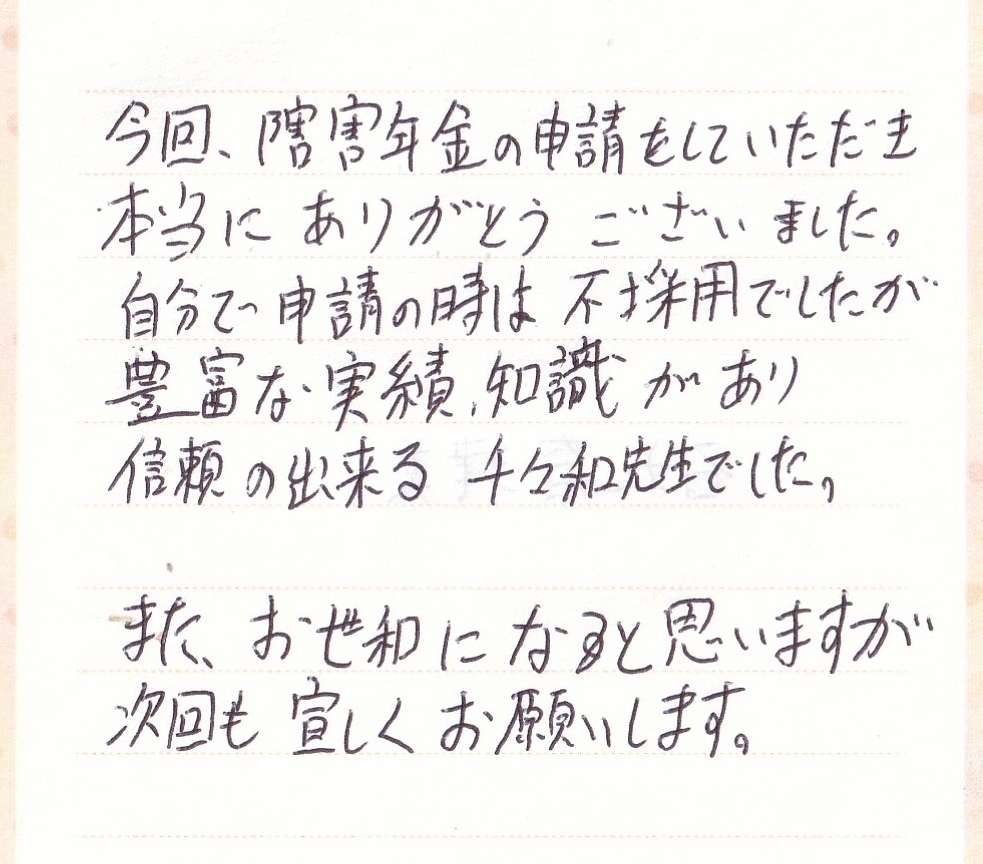 今回、障害年金の申請をしていただき
本当に ありがとう ございました。
自分で申請の時は 不採用でしたが
豊富な実績、知識 があり
信頼の出来る 千々和先生でした。
また、お世和になると思いますが
次回も宜しくお願いします。